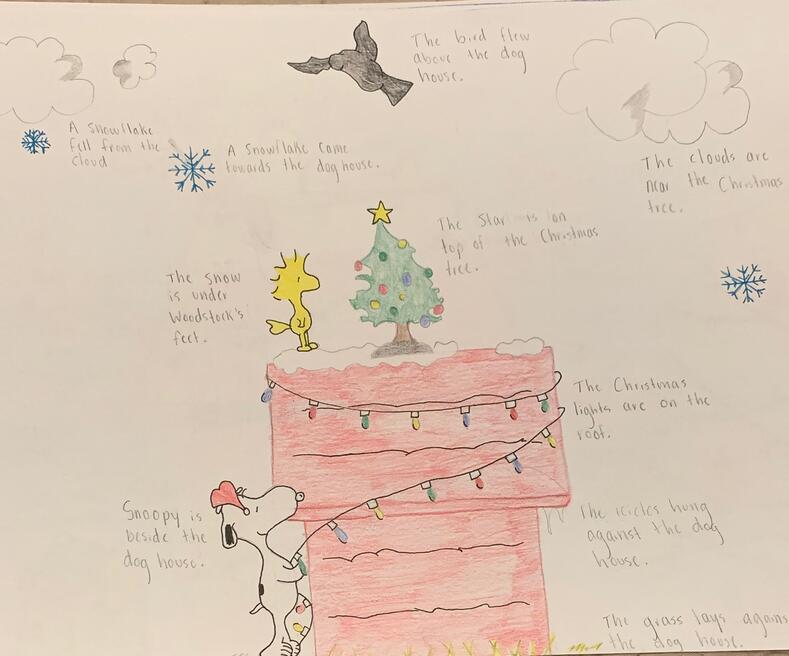 The bird flew
above the dog
house.
A snowflake
fell from the
cloud
A snowflake came
towards the dog house.
The clouds are
near the Christmas
tree.
The star is on
top of the Christmas
tree.
The snow
is under
Woodstock's
feet.
The Christmas
lights are on the
roof.
Snoopy is
beside the
dog house.
The icicles hung
against the dog
house.
The grass lays against
the dog house.